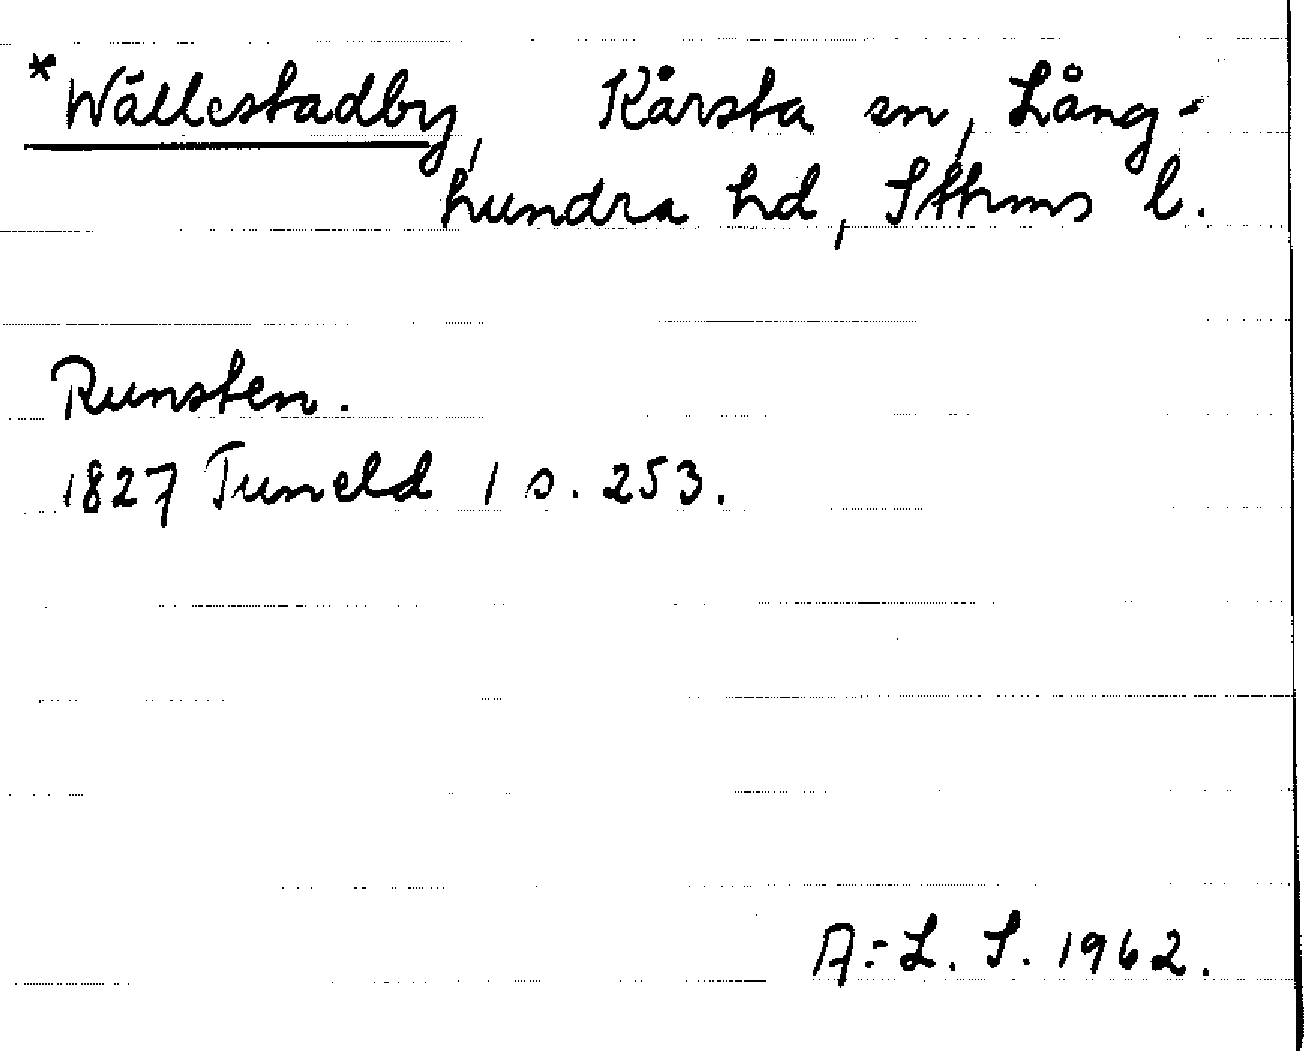 *Wällestadby, Kårsta sn, Lång-
hundra hd, Sthms l.
Runsten.
1827 Tuneld 1 s. 253.
A:L. S. 1962.